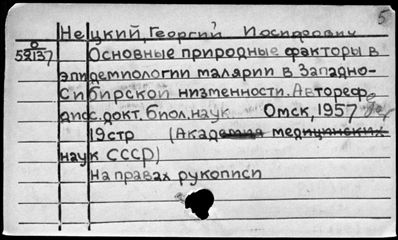 5
Нецкий, Георгий Иосифович
О
52137
Основные природные факторы в
эпидемиологии малярии в Западно-
Сибирской низменности. Автореф.
дисс. докт. биол. наук Омск, 1957
19стр (Академия медицинских
наук СССР)
На правах рукописи